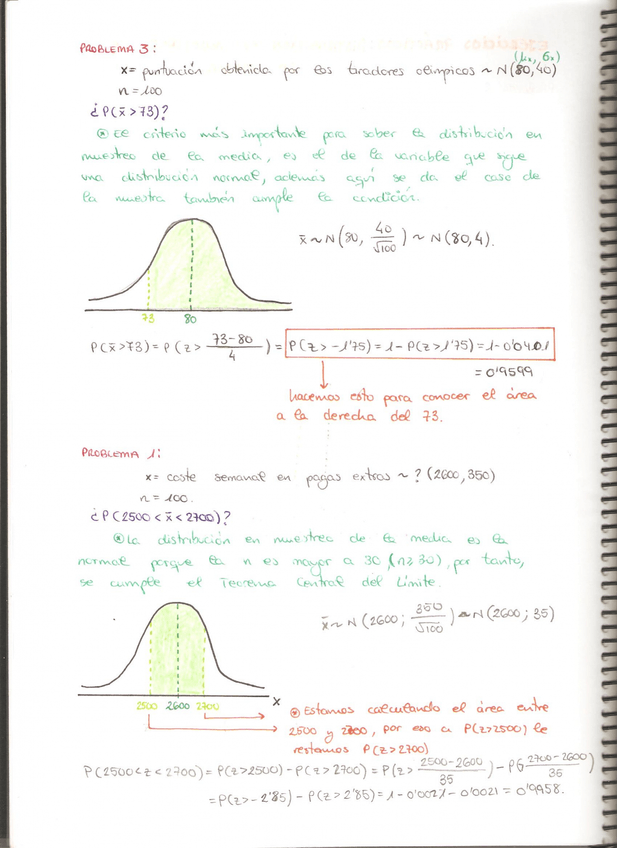 PROBLEMA 3:
(μx, σx)
x = puntuación obtenida por los tiradores olímpicos ~ N(80,40)
n = 100
¿P(x̄ > 73)?
⊛ El criterio más importante para saber la distribución en
muestreo de la media, es el de la variable que sigue
una distribución normal, además aquí se da el caso de
la muestra también cumple la condición.
x̄ ~ N(80, 40/√100) ~ N(80,4).
73 80
P(x̄ > 73) = P(z > 73-80/4) = P(z > -1'75) = 1 - P(z > 1'75) = 1 - 0'0401
= 0'9599
hacemos esto para conocer el área
a la derecha del 73.
PROBLEMA 1:
x = coste semanal en pagas extras ~ ? (2600, 350)
n = 100.
¿P(2500 < x̄ < 2700)?
⊛ La distribución en muestreo de la media es la
normal porque la n es mayor a 30 (n ≥ 30), por tanto,
se cumple el Teorema Central del Límite.
x̄ ~ N(2600; 350/√100) ~ N(2600; 35)
2500 2600 2700 x
⊛ Estamos calculando el área entre
2500 y 2700, por eso a P(z>2500) le
restamos P(z>2700)
P(2500 < z < 2700) = P(z > 2500) - P(z > 2700) = P(z > 2500-2600/35) - P(> 2700-2600/35)
= P(z > -2'85) - P(z > 2'85) = 1 - 0'0021 - 0'0021 = 0'9958.